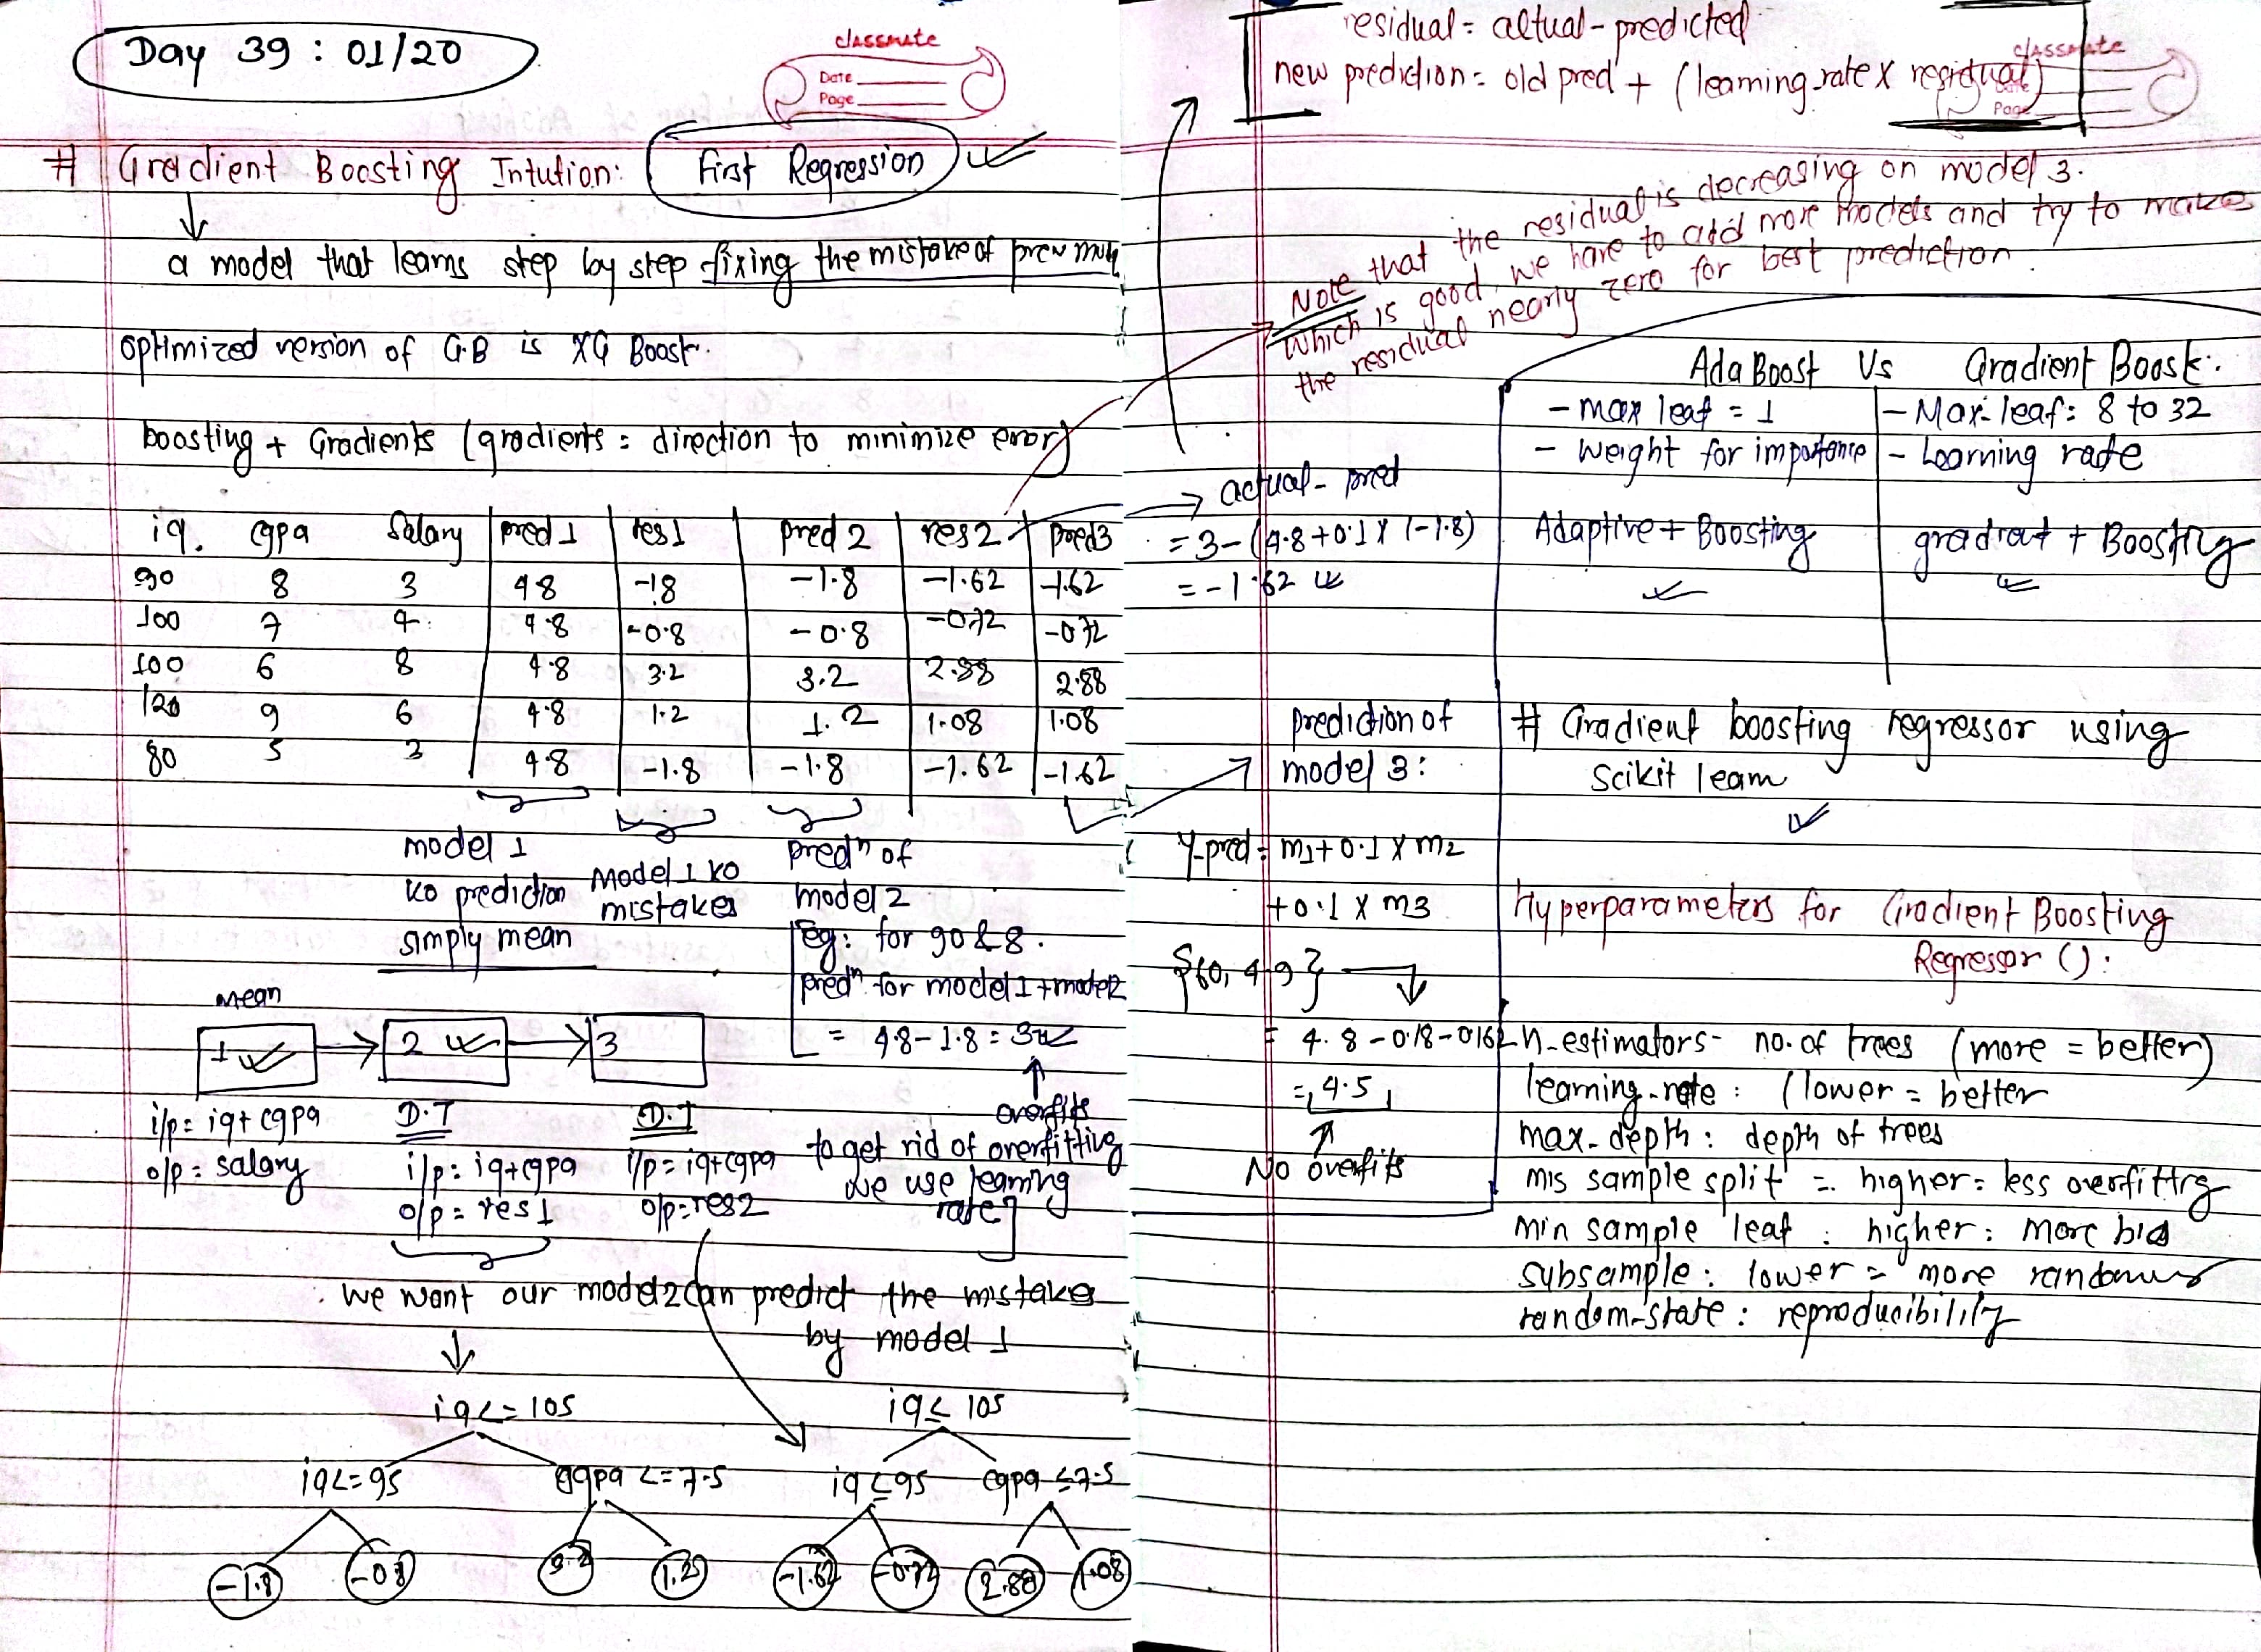 Day 39 : 01/20
classmate
Date
Page
# Gradient Boosting Intution: First Regression
a model that learns step by step fixing the mistake of prev
optimized version of G.B is XG Boost.
boosting + Gradients (gradients = direction to minimize error)
iq. cgpa Salary pred 1 res1 pred 2 res2 pred3
90 8 3 4.8 -1.8 -1.8 -1.62 -1.62
100 7 4 4.8 -0.8 -0.8 -0.72 -0.72
100 6 8 4.8 3.2 3.2 2.88 2.88
120 9 6 4.8 1.2 1.2 1.08 1.08
80 5 3 4.8 -1.8 -1.8 -1.62 -1.62
model 1
ko prediction
simply mean
Model 1 ko
mistakes
predn of
model 2
Eg: for 90 & 8.
predn for model 1 + model2
= 4.8 - 1.8 = 3
overfits
to get rid of overfitting
we use learning
rate
mean
1 2 3
i/p = iq+cgpa
o/p = salary
D.T
i/p = iq+cgpa
o/p = res1
D.T
i/p = iq+cgpa
o/p = res2
we want our model2 can predict the mistakes
by model 1
iq <= 105
iq <= 95 cgpa <= 7.5
-1.8 -0.8 3.2 1.2
iq ≤ 105
iq ≤ 95 cgpa ≤ 7.5
-1.62 -0.72 2.88 1.08
residual = actual - predicted
new prediction = old pred + (learning_rate x residual)
classmate
Page
Note that the residual is decreasing on model 3.
which is good, we have to add more models and try to make
the residual nearly zero for best prediction.
actual - pred
= 3 - (4.8 + 0.1 x (-1.8)
= -1.62
Ada Boost Vs Gradient Boost.
- max leaf = 1 - Max leaf: 8 to 32
- weight for importance - Learning rate
Adaptive + Boosting gradient + Boosting
prediction of
model 3:
y-pred = m1 + 0.1 x m2
+ 0.1 x m3
{60, 4.9}
= 4.8 - 0.18 - 0.162
= 4.5
No overfits
# Gradient boosting regressor using
Scikit learn
Hyperparameters for Gradient Boosting
Regressor ():
n_estimators - no. of trees (more = better)
learning-rate : (lower = better
max-depth : depth of trees
mis sample split = higher = less overfitting
min sample leaf : higher : more bias
subsample : lower = more randomness
random-state : reproducibility